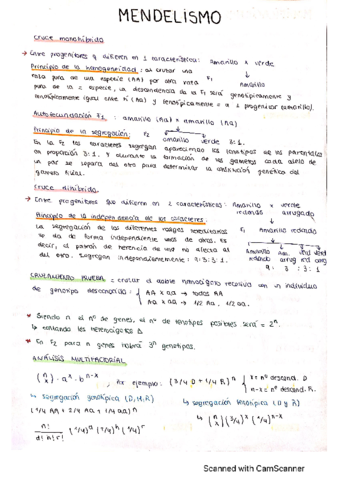 MENDELISMO
cruce monohíbrido
→ Entre progenitores q difieren en 1 característica: amarillo x verde
Principio de la homogeneidad: al cruzar una F1 amarillo
raza pura de una especie (AA) con otra raza
pura de la = especie, la descendencia de la F1 será genotípicamente y
fenotípicamente igual entre sí (Aa) y fenotípicamente = a 1 progenitor (amarillo).
Autofecundación F1 : amarillo (Aa) — amarillo (Aa)
Principio de la segregación: F2 amarillo verde 3:1.
En la F2 los caracteres segregan apareciendo los fenotipos de los parentales
en proporción 3:1. Y durante la formación de los gametos cada alelo de
un par se separa del otro para determinar la constitución genética del
gameto filial.
cruce dihíbrido
→ Entre progenitores que difieren en 2 características: Amarillo x verde
redondo arrugado
Principio de la independencia de los caracteres:
La segregación de los diferentes rasgos hereditarios F1 Amarillo redondo
se da de forma independiente unos de otros. Es
decir, el patrón de herencia de uno no afecta al
del otro. Segregan independientemente: 9:3:3:1.
9 : 3 : 3 : 1
CRUZAMIENTO PRUEBA = cruzar el doble homocigoto recesivo con un individuo
de genotipo desconocido: AA x aa → todos Aa
Aa x aa → 1/2 Aa, 1/2 aa.
* Siendo n el nº de genes, el nº de fenotipos posibles será = 2ⁿ.
↳ contando los heterocigotos
* En F2 para n genes habrá 3ⁿ genotipos.
ANÁLISIS MULTIFACTORIAL
(n x) · aˣ · bⁿ⁻ˣ Por ejemplo: (3/4 D + 1/4 R)ⁿ { x = nº descend. D.
n-x = nº descend. R.
↳ segregación genotípica (D, H, R) ↳ segregación fenotípica (D y R)
(1/4 AA + 2/4 Aa + 1/4 aa)ⁿ ↳ (n x)(3/4)ˣ (1/4)ⁿ⁻ˣ
n! / d! h! r! (1/4)ᵈ (2/4)ʰ (1/4)ʳ
Scanned with CamScanner